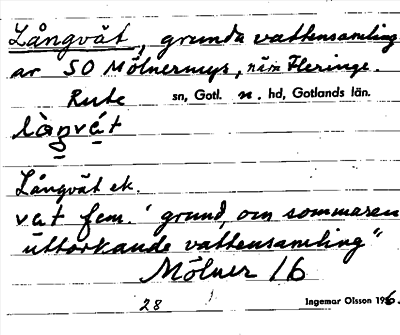 Långvät, grunda vattensamling
ar SO Mölnermyr, näm Fleringe.
Rute sn, Gotl. n. hd, Gotlands län.
làŋvé̱t
Långvät ek.
vät fem. "grund, om sommaren
uttorkande vattensamling"
Mölner 16
28 Ingemar Olsson 196.